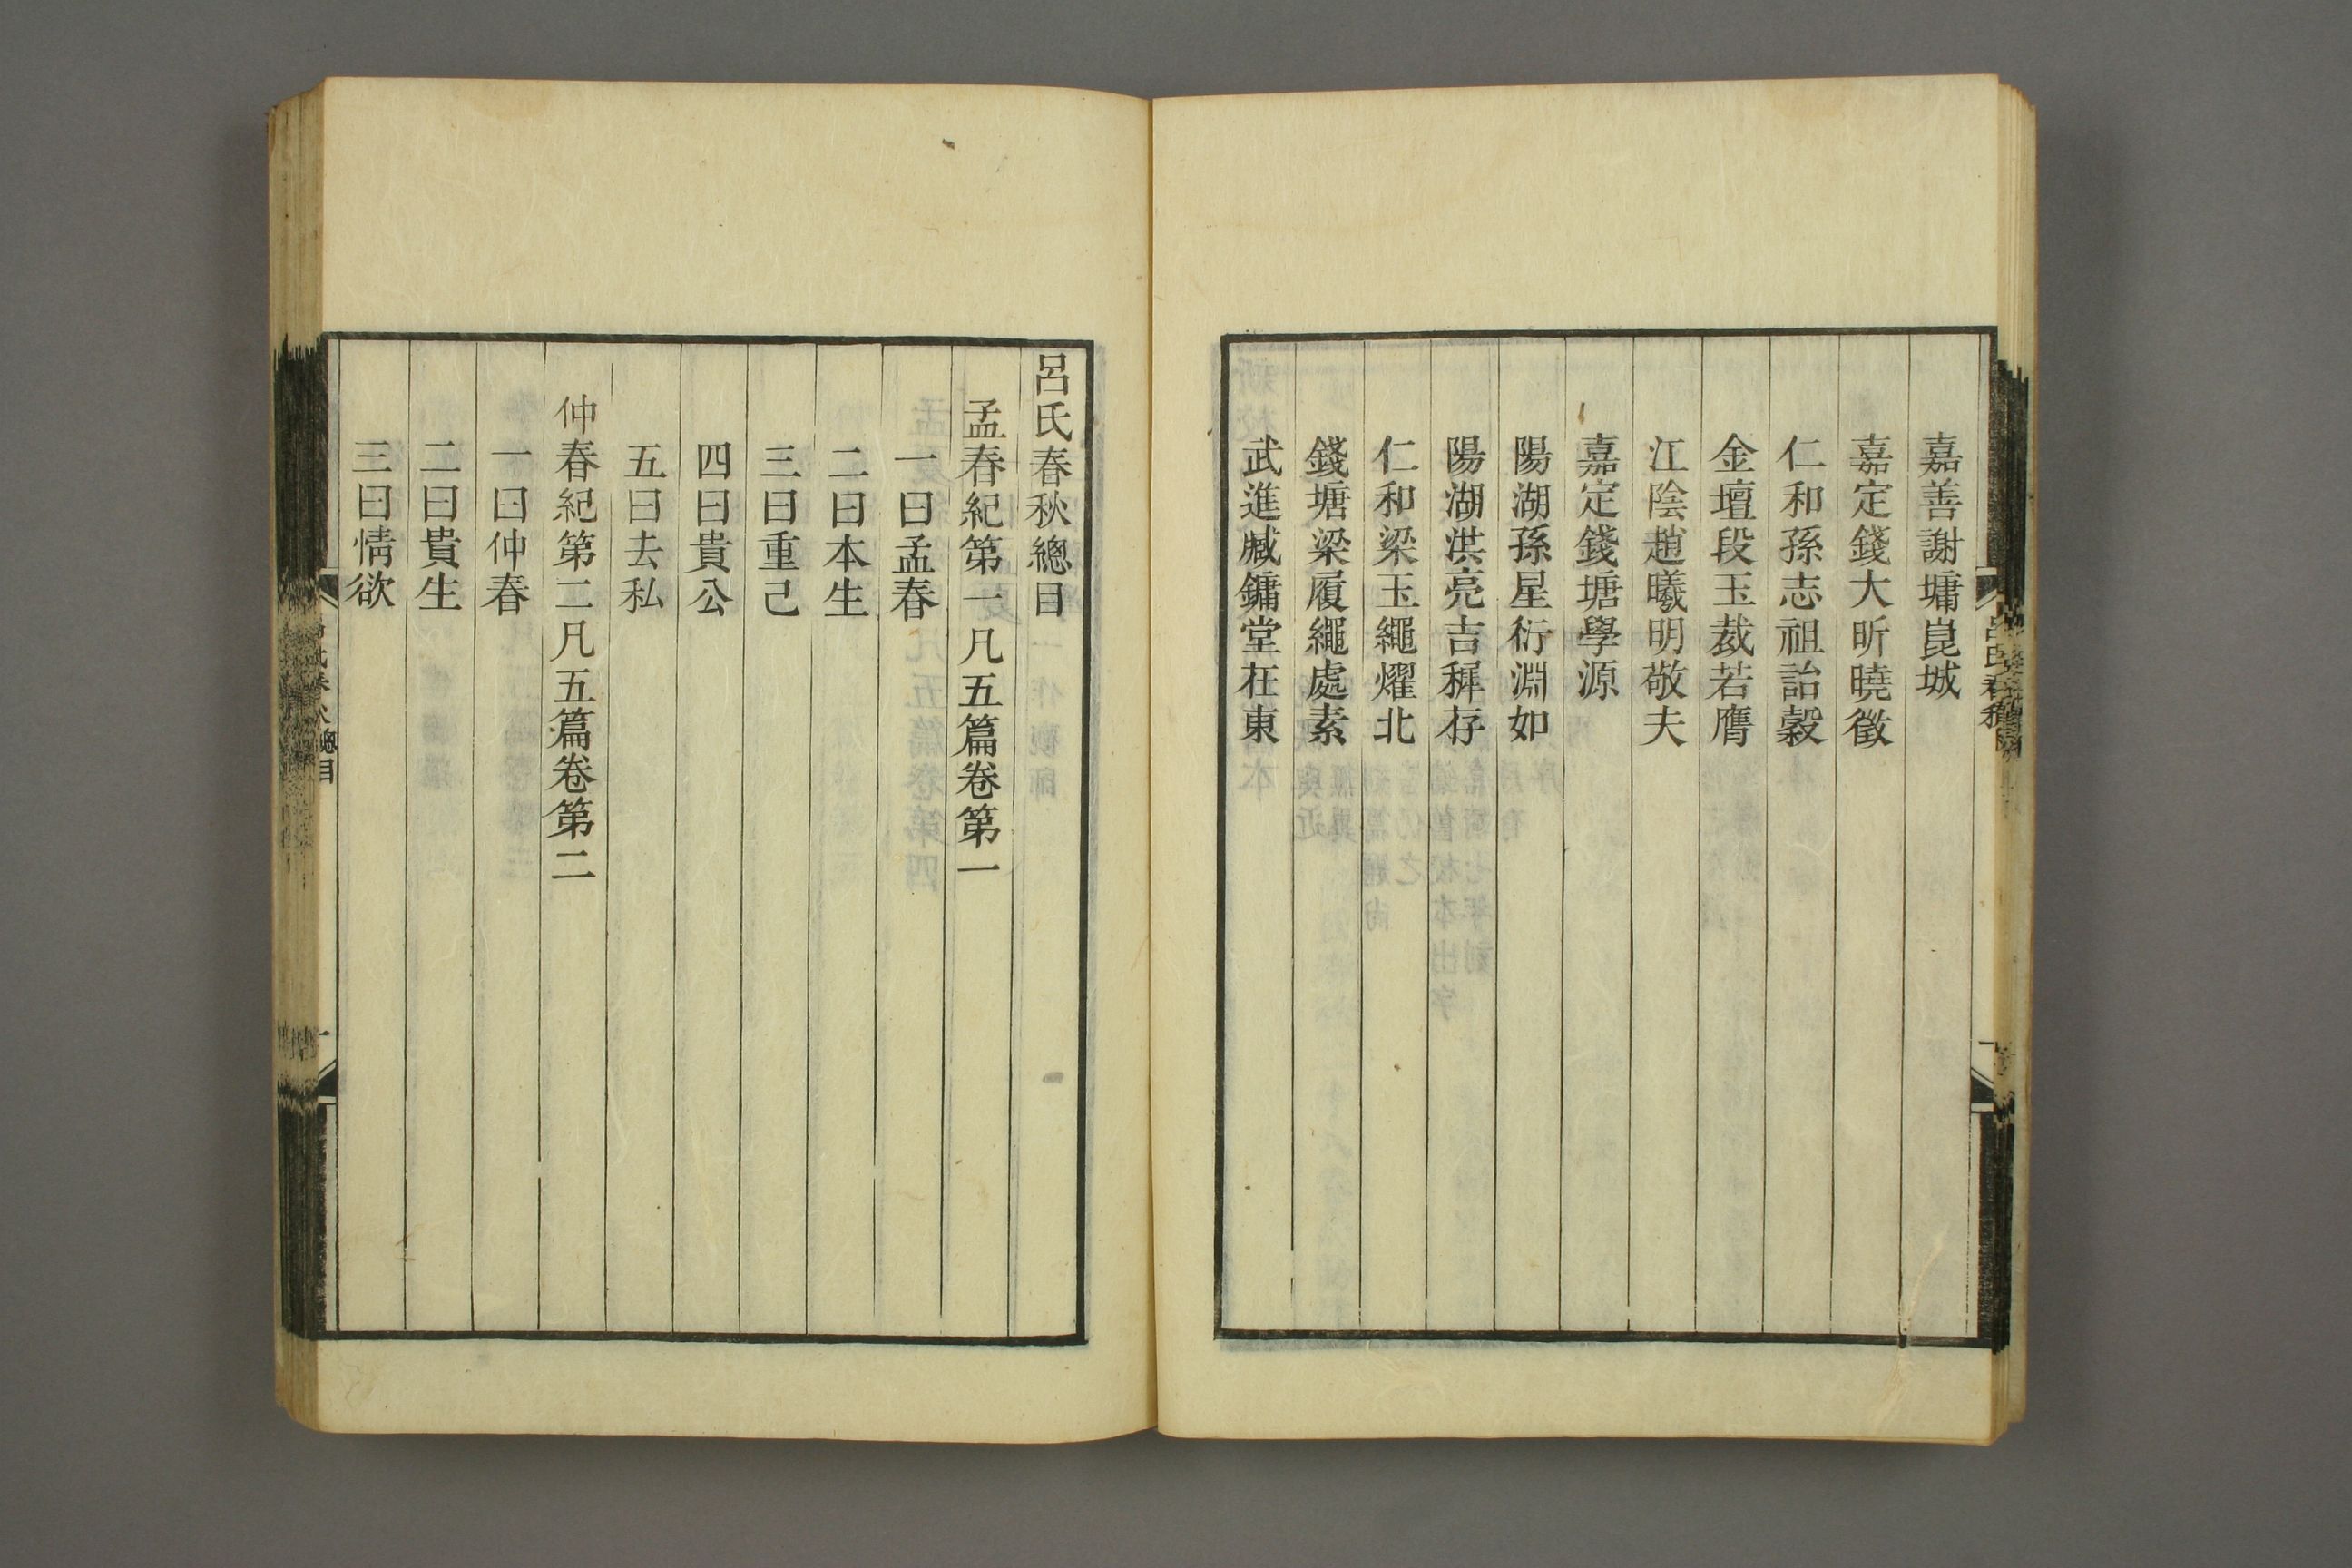 嘉善謝墉崑城
嘉定錢大昕曉徵
仁和孫志祖詒穀
金壇段玉裁若膺
江陰趙曦明敬夫
嘉定錢塘學源
陽湖孫星衍淵如
陽湖洪亮吉穉存
仁和梁玉繩燿北
錢塘梁履繩處素
武進臧鏞堂在東
呂氏春秋總目
孟春紀第一凡五篇卷第一
一曰孟春
二曰本生
三曰重己
四曰貴公
五曰去私
仲春紀第二凡五篇卷第二
一曰仲春
二曰貴生
三曰情欲